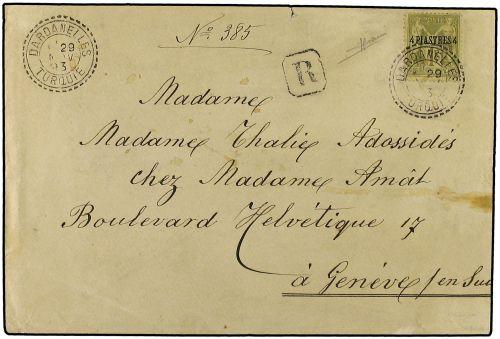 DARDANELLES
29
93
TURQUIE
No. 385
R
4 PIASTRES 4
DARDANELLES
29
TURQUIE
Madame
Madame Thalie Adossidés
chez Madame Amât
Boulevard Helvétique 17
à Genève / en Sui